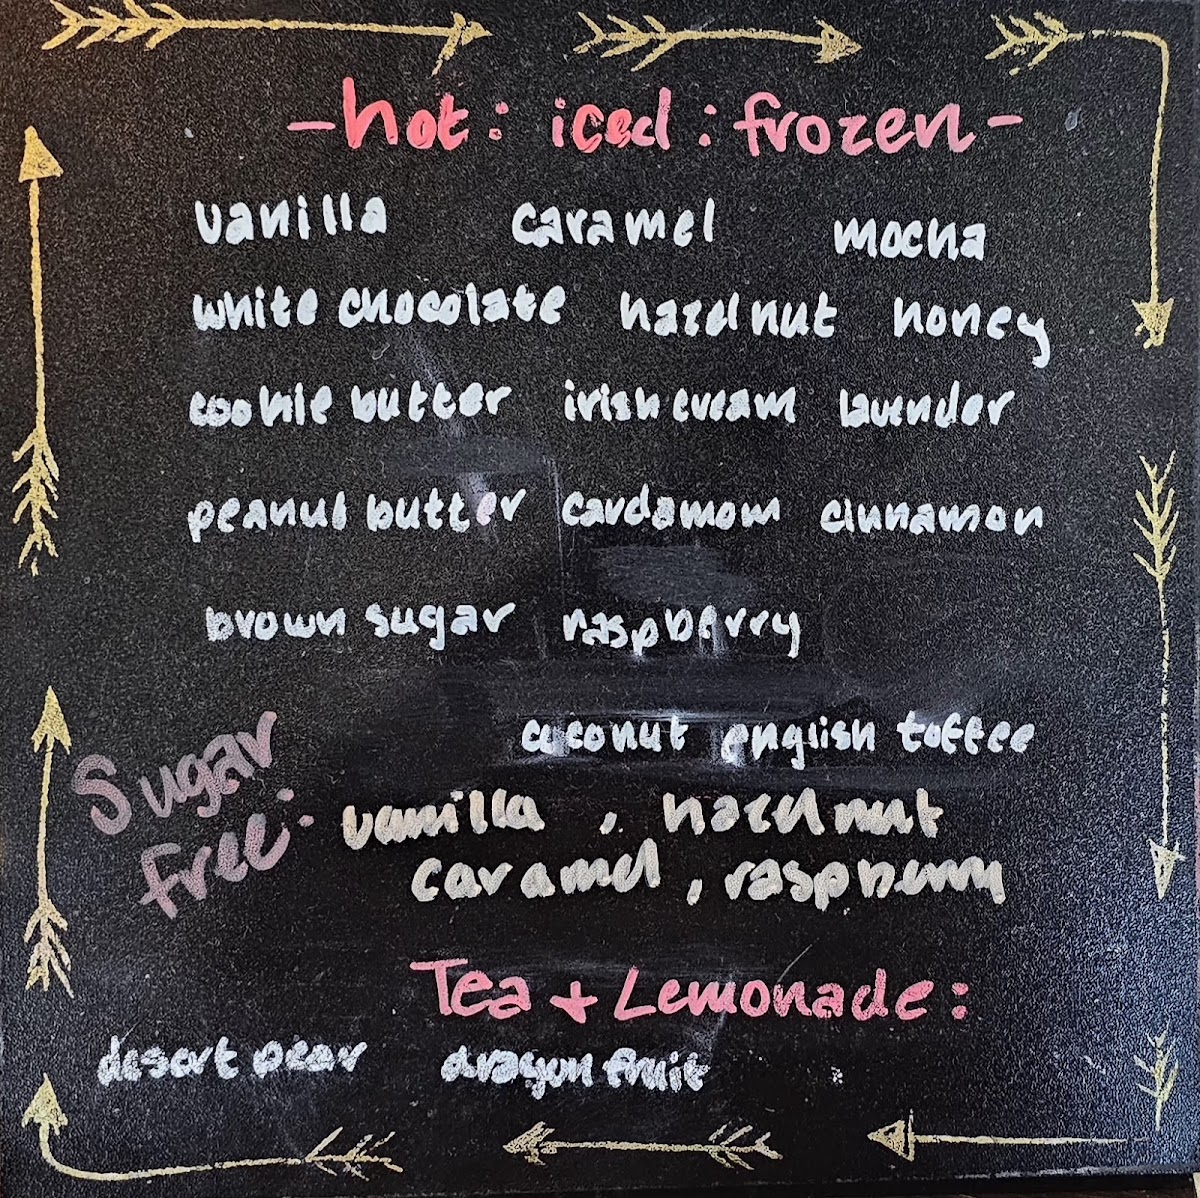 -hot: iced: frozen-
vanilla caramel mocha
white chocolate hazelnut honey
cookie butter irish cream lavender
peanut butter cardamom cinnamon
brown sugar raspberry
coconut english toffee
Sugar free:
vanilla, hazelnut
caramel, raspberry
Tea + Lemonade:
desert pear dragonfruit